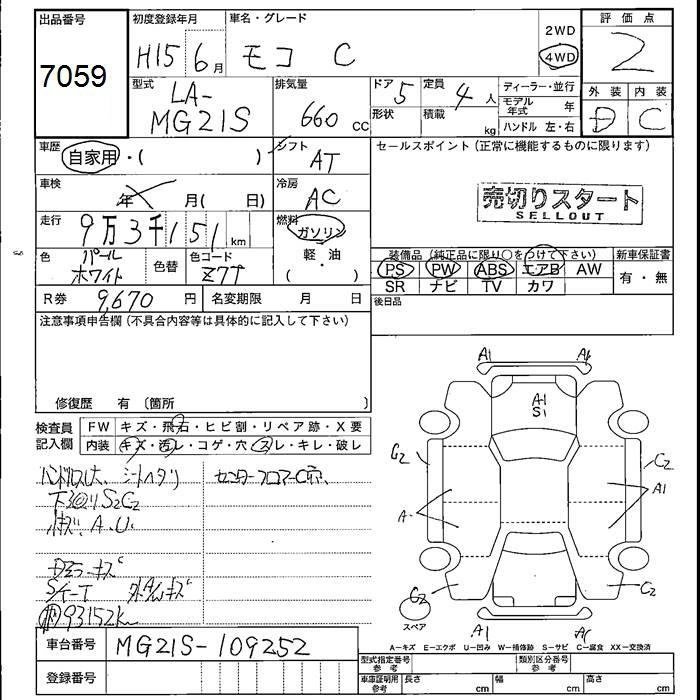 出品番号 初度登録年月 車名・グレード 評価点
7059 H15 6月 モコ C 2WD 4WD 2
型式 排気量 ドア 5 定員 4人 ディーラー・並行 外装 内装
LA- 形状 積載 kg モデル年式 年 D C
MG21S 660 cc ハンドル 左・右
車歴 自家用・( ) シフト AT セールスポイント (正常に機能するものに限ります)
車検 年 月( 日) 冷房 AC 売切りスタート
SELLOUT
走行 9万3千151km 燃料 ガソリン
軽・油
( )
色 パール ホワイト 色替 色コード Z7T
装備品 (純正品に限り○をつけて下さい) 新車保証書
PS PW ABS エアB AW 有・無
SR ナビ TV カワ
R券 9,670円 名変期限 月 日 後日品
注意事項申告欄(不具合内容等は具体的に記入して下さい)
修復歴 有 〔箇所 〕
検査員記入欄 FW キズ・飛石・ヒビ割・リペア跡・X要
内装 キズ・汚レ・コゲ・穴・スレ・キレ・破レ
ハンドルスレ大、シートヘタリ センターフロアーC穴、
S2C2
A.U.
Dミラーキズ
S/T-T 外アルミキズ
93152km
A1 A1
A1
S1
G2 C2
A A1
G2 C2
スペア
A1
A-キズ E-エクボ U-凹み W-補修跡 S-サビ C-腐食 XX-交換済
車台番号 MG21S-109252
登録番号
型式指定番号 参考 類別区分番号 参考
車庫証明用 参考 長さ cm 幅 cm 高さ cm